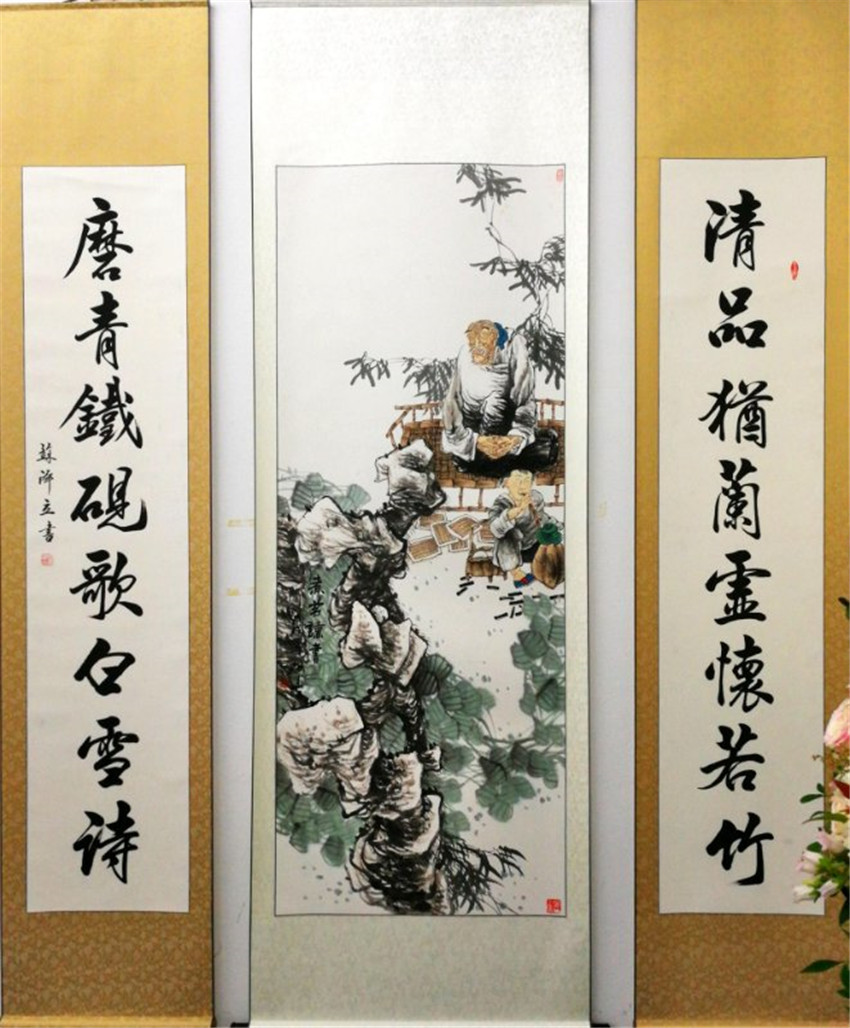 清品猶蘭虛懷若竹
磨青鐵硯歌白雪詩
蘇立書